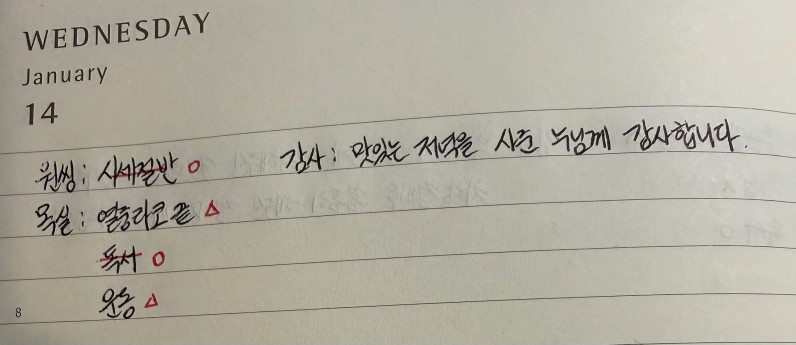 WEDNESDAY
January
14
원씽: 시세절반 O 감사: 맛있는 저녁을 사준 누님께 감사합니다.
목실: 열흥라로 끝 △
독서 O
운동 △
8